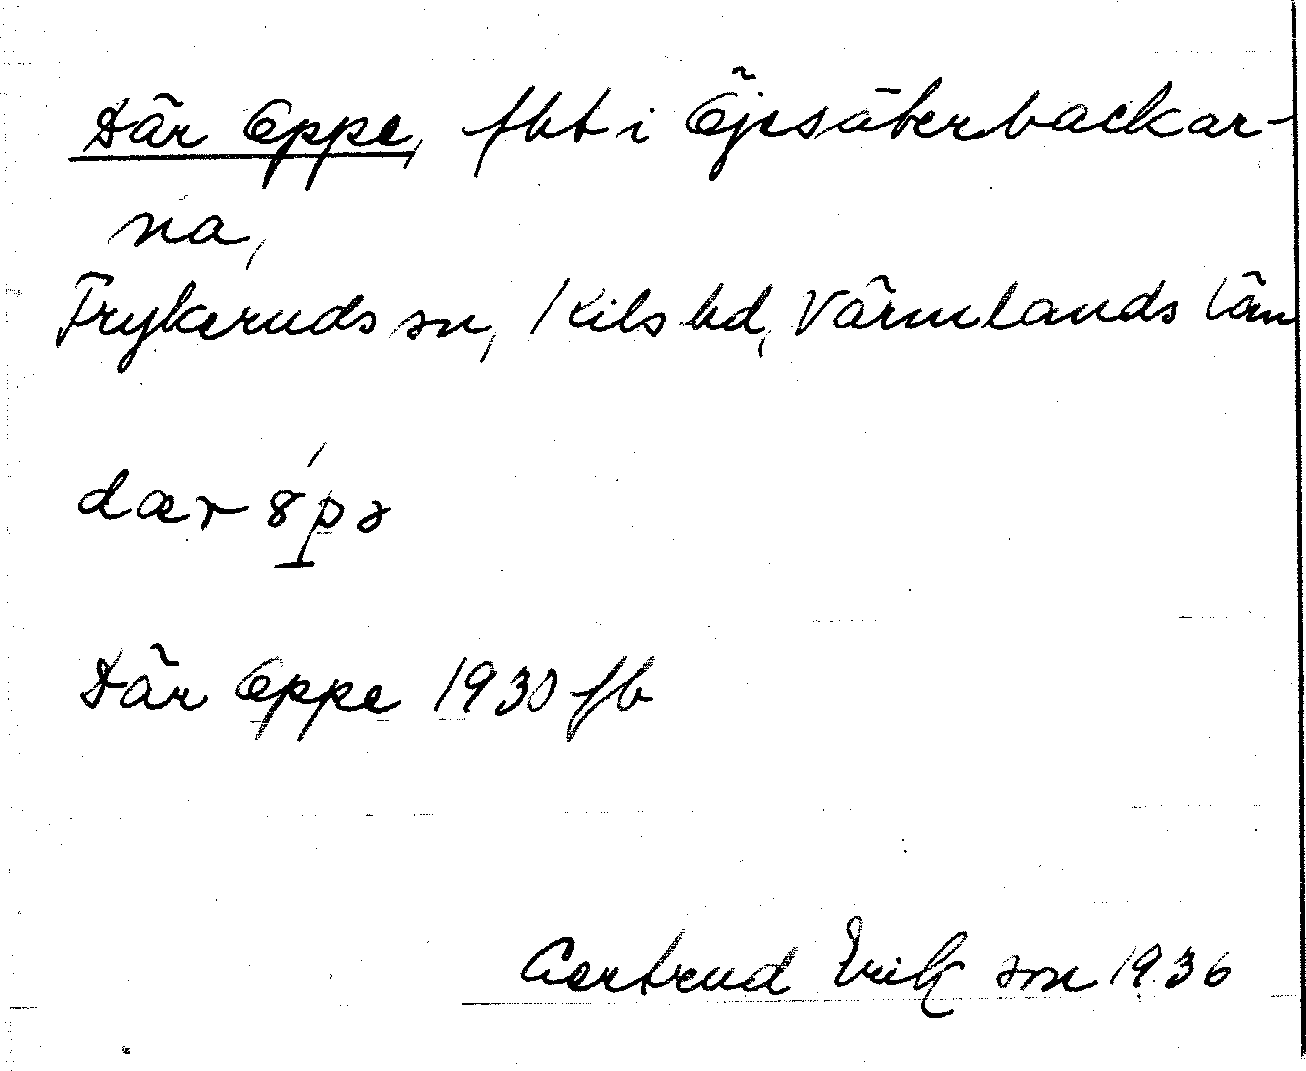 Där Öppe, fbt i Öjesäterbackar-
na,
Frykeruds sn, Kils hd, Värmlands län
dær 8 ́pə
Där Öppe 1930 fb
Gertrud Erikson 1936